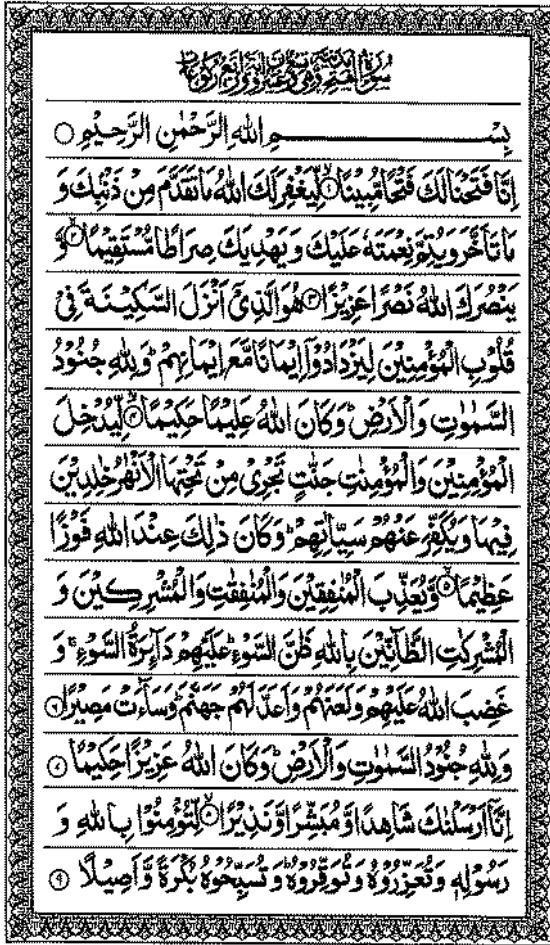 سُوْرَةُ الْفَتْحِ مَدَنِيَّةٌ وَّهِيَ تِسْعٌ وَّعِشْرُوْنَ اٰيَةً وَّاَرْبَعُ رُكُوْعَاتٍ
بِسْــــــــــــمِ اللهِ الرَّحْمٰنِ الرَّحِيْمِ ○
اِنَّا فَتَحْنَا لَكَ فَتْحًا مُّبِيْنًا ۙ﴿۱﴾ لِّيَغْفِرَ لَكَ اللهُ مَا تَقَدَّمَ مِنْ ذَنْۢبِكَ وَ
مَا تَاَخَّرَ وَيُتِمَّ نِعْمَتَهٗ عَلَيْكَ وَيَهْدِيَكَ صِرَاطًا مُّسْتَقِيْمًا ۙ﴿۲﴾ وَّ
يَنْصُرَكَ اللهُ نَصْرًا عَزِيْزًا ﴿۳﴾ هُوَ الَّذِيْۤ اَنْزَلَ السَّكِيْنَةَ فِيْ
قُلُوْبِ الْمُؤْمِنِيْنَ لِيَزْدَادُوْۤا اِيْمَانًا مَّعَ اِيْمَانِهِمْ ؕ وَلِلّٰهِ جُنُوْدُ
السَّمٰوٰتِ وَالْاَرْضِ ؕ وَكَانَ اللهُ عَلِيْمًا حَكِيْمًا ۙ﴿۴﴾ لِّيُدْخِلَ
الْمُؤْمِنِيْنَ وَالْمُؤْمِنٰتِ جَنّٰتٍ تَجْرِيْ مِنْ تَحْتِهَا الْاَنْهٰرُ خٰلِدِيْنَ
فِيْهَا وَيُكَفِّرَ عَنْهُمْ سَيِّاٰتِهِمْ ؕ وَكَانَ ذٰلِكَ عِنْدَ اللهِ فَوْزًا
عَظِيْمًا ۙ﴿۵﴾ وَّيُعَذِّبَ الْمُنٰفِقِيْنَ وَالْمُنٰفِقٰتِ وَالْمُشْرِكِيْنَ وَ
الْمُشْرِكٰتِ الظَّآنِّيْنَ بِاللهِ ظَنَّ السَّوْءِ ؕ عَلَيْهِمْ دَآئِرَةُ السَّوْءِ ۚ وَ
غَضِبَ اللهُ عَلَيْهِمْ وَلَعَنَهُمْ وَاَعَدَّ لَهُمْ جَهَنَّمَ ؕ وَسَآءَتْ مَصِيْرًا ﴿۶﴾
وَلِلّٰهِ جُنُوْدُ السَّمٰوٰتِ وَالْاَرْضِ ؕ وَكَانَ اللهُ عَزِيْزًا حَكِيْمًا ﴿۷﴾
اِنَّاۤ اَرْسَلْنٰكَ شَاهِدًا وَّمُبَشِّرًا وَّنَذِيْرًا ۙ﴿۸﴾ لِّتُؤْمِنُوْا بِاللهِ وَ
رَسُوْلِهٖ وَتُعَزِّرُوْهُ وَتُوَقِّرُوْهُ ؕ وَتُسَبِّحُوْهُ بُكْرَةً وَّاَصِيْلًا ﴿۹﴾